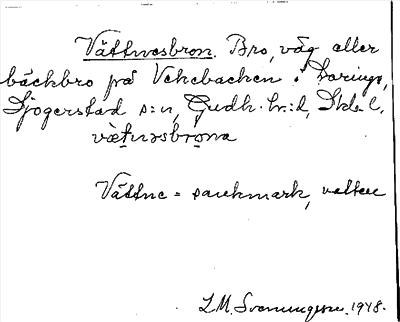 Vättnesbron. Bro, väg eller
bäckbro på Vehebacken i
Sjogerstad s:n, Gudh. hr:d, Skb. l.
vætnəsbrona
Vättne = sankmark, vatten
L.M. Svenungsson. 1948.